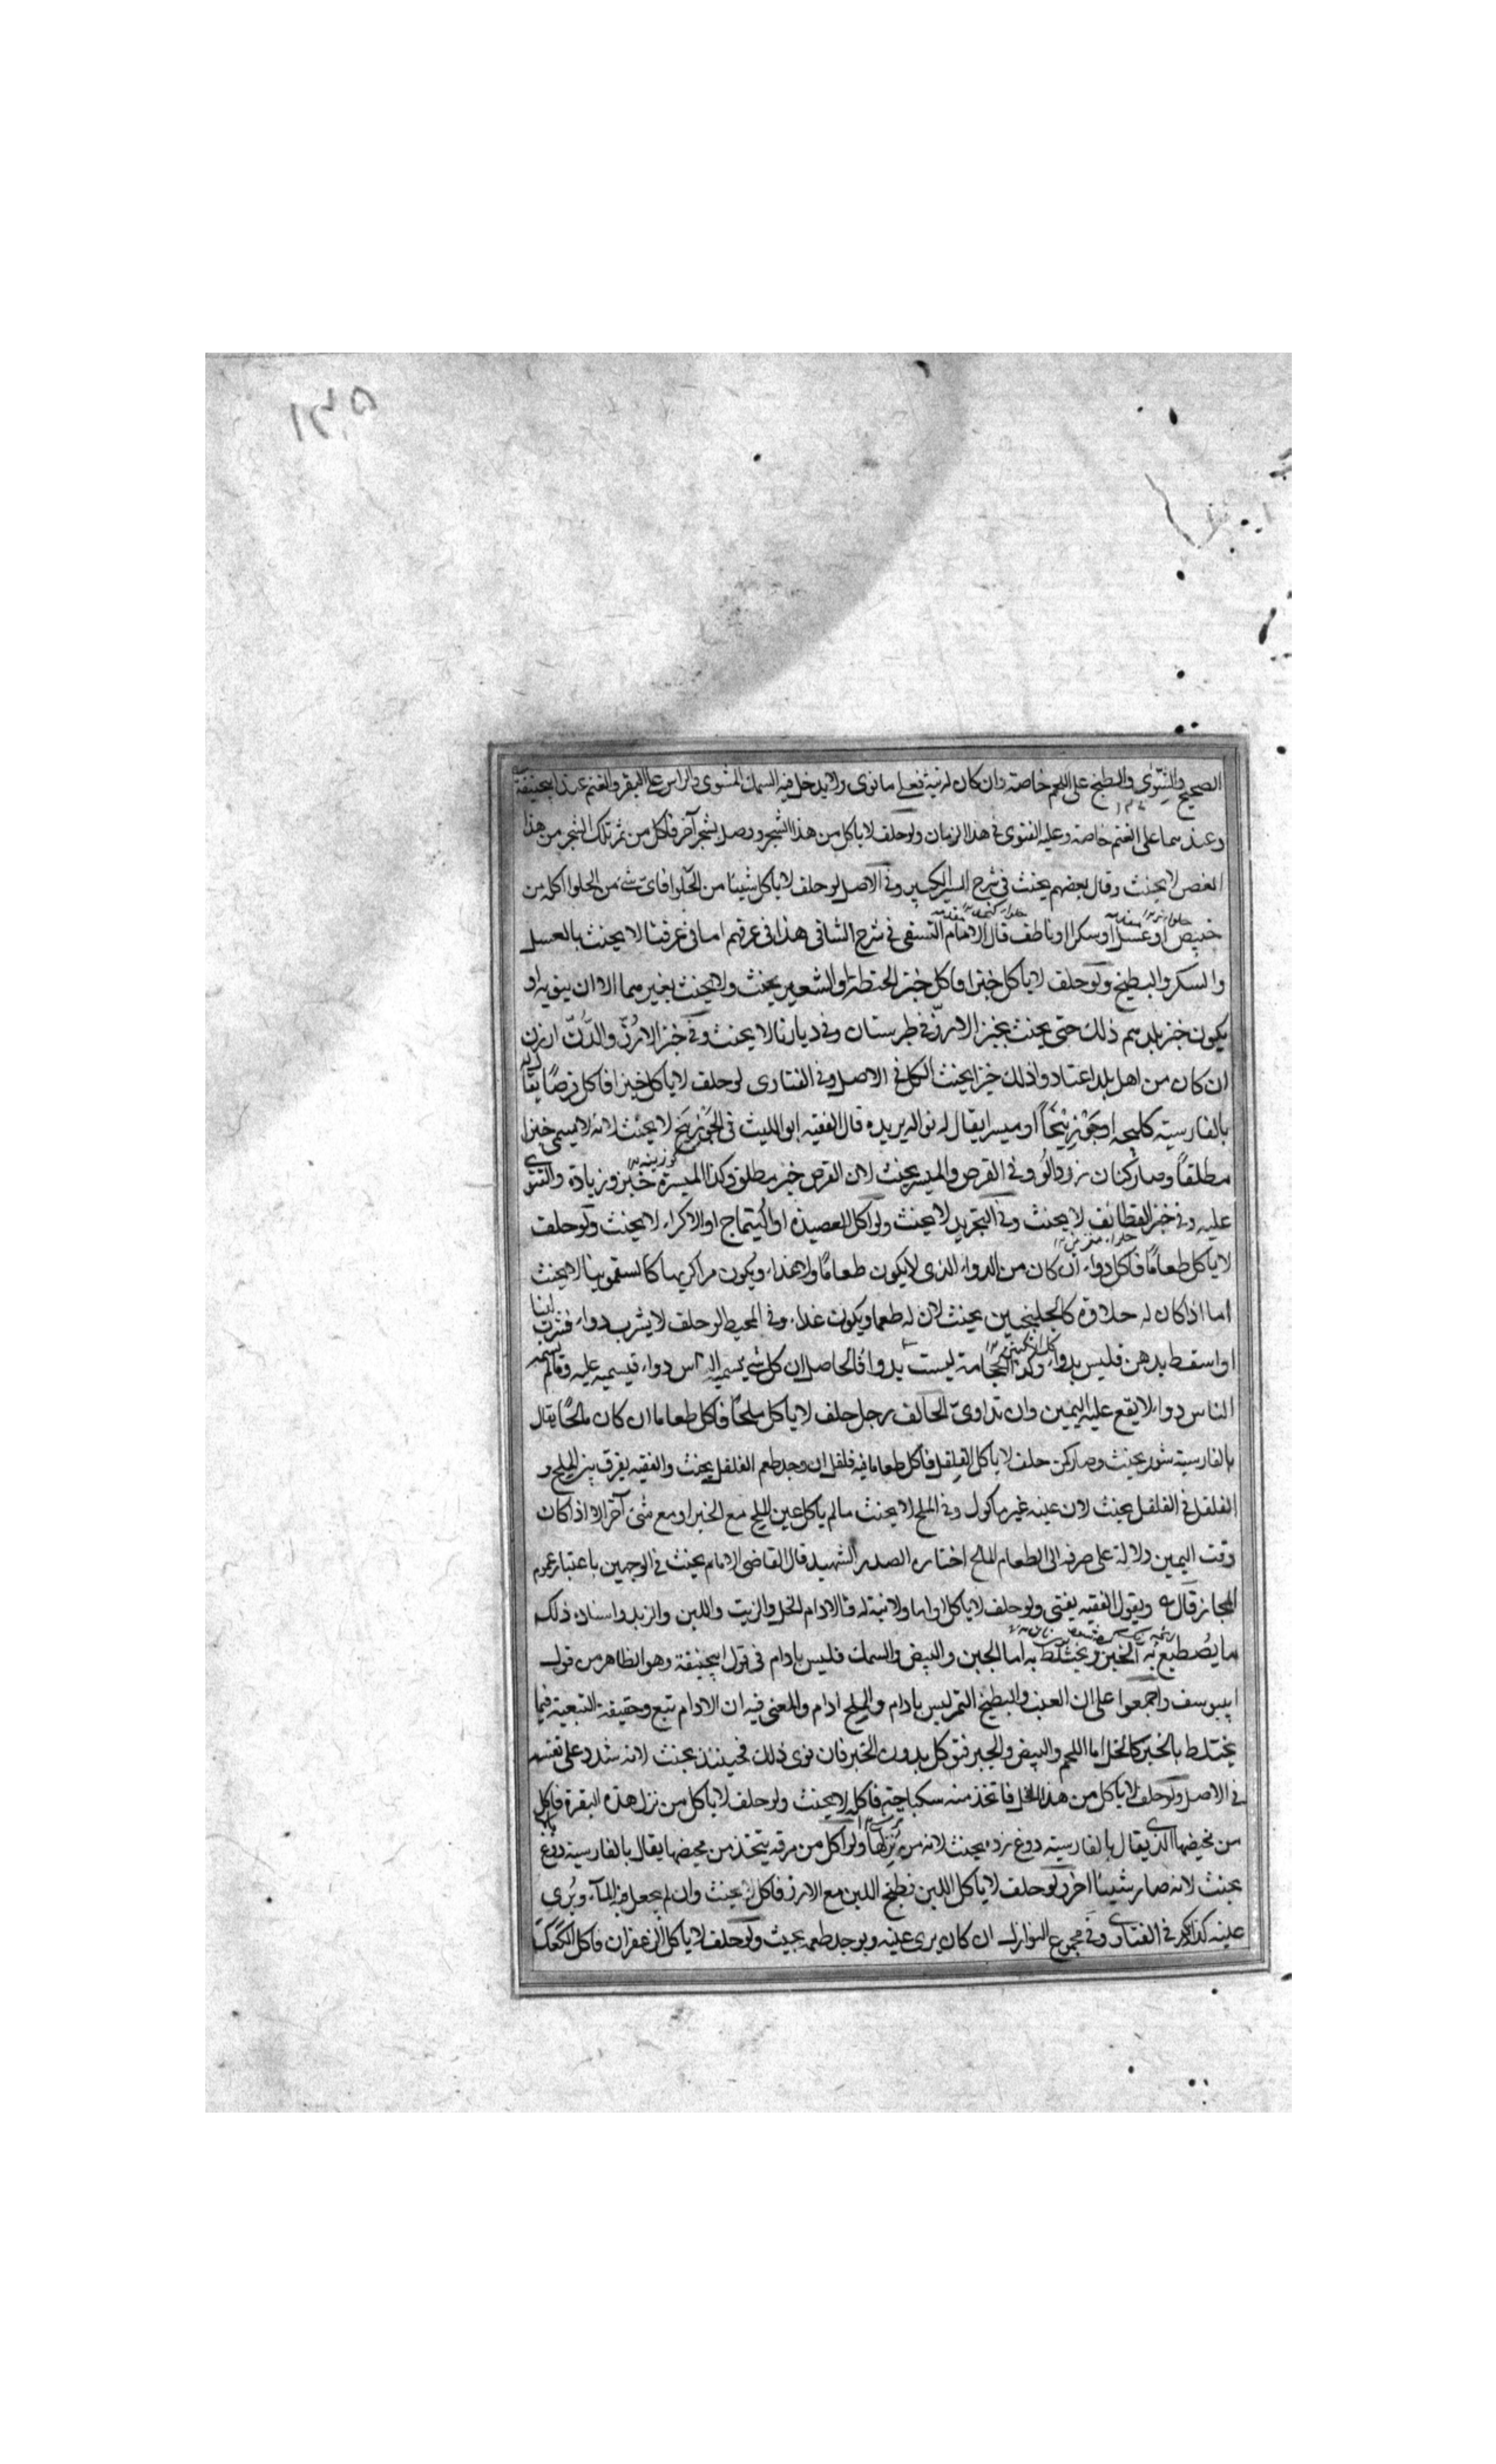 الصحيح والشوى والطبخ على اللحم خاصة وان كان له نية فعلى ما نوى ولا يدخل فيه السمك المشوى والراس على البقر والغنم عند ابيحنيفة
وعندهما على الغنم خاصة وعليه الفتوى فى هذا الزمان ولو حلف لا ياكل من هذا الشجر ووصل بشجر آخر فاكل من ثمر تلك الشجر من هذا
الغصن لا يحنث وقال بعضهم يحنث فى شرح السير الكبير وفى الاصل لو حلف لا ياكل شيئا من الحلوا فاى شئ من الحلوا اكله من
خبيص او عسل او سكر او ناطف قال الامام النسفى فى شرح الشافى هذا فى عرفهم اما فى عرفنا لا يحنث بالعسل
والسكر والبطيخ ولو حلف لا ياكل خبزا فاكل خبز الحنطة والشعير يحنث ولا يحنث بغيرهما الا ان ينويه او
يكون خبز بلدهم ذلك حتى يحنث بخبز الارز فى طبرستان وفى ديارنا لا يحنث وفى خبز الارز والدخن ارزن
ان كان من اهل بلد اعتادوا ذلك خبزا يحنث الكل فى الاصل وفى الفتاوى لو حلف لا ياكل خبزا فاكل قرصا يقال له
بالفارسية كليجه او جوزينجا او ميسرا يقال له نواله بريده قال الفقيه ابو الليث فى الجوزينج لا يحنث لانه لا يسمى خبزا
مطلقا وفى القرص والميسر يحنث لان القرص خبز مطلق وكذا الميسرة خبز وزيادة والفتوى
عليه وفى خبز القطائف لا يحنث وفى التجريد لا يحنث ولو اكل العصيدة او التتماج او الاكراء لا يحنث ولو حلف
لا ياكل طعاما فاكل دواء ان كان من الدواء الذى لا يكون طعاما ولا غذاء ويكون مرا كريها كالسقمونيا لا يحنث
اما اذا كان له حلاوة كالجلنجبين يحنث لان له طعما ويكون غذاء وفى المحيط لو حلف لا يشرب دواء فشرب لبنا
او اسقط بدهن فليس بدواء وكذا الحجامة ليست بدواء فالحاصل ان كل شئ يسميه الناس دواء فيسميه عليه وما لم يسمه
الناس دواء لا يقع عليه اليمين وان تداوى الحالف رجل حلف لا ياكل ملحا فاكل طعاما ان كان مالحا يقال
بالفارسية شور يحنث حلف لا ياكل الفلفل فاكل طعاما فيه فلفل ان وجد طعم الفلفل يحنث والفقيه يفرق بين الملح و
الفلفل فى الفلفل يحنث لان عينه غير ماكول وفى الملح لا يحنث ما لم ياكل عين الملح مع الخبز او مع شئ آخر الا اذا كان
وقت اليمين دلالة على صرفه الى الطعام المالح اختاره الصدر الشهيد قال القاضى الامام يحنث فى الوجهين باعتبار عموم
المجاز قال وبقول الفقيه يفتى ولو حلف لا ياكل اداما ولا نية له فالادام الخل والزيت واللبن والزبد واشباه ذلك
ما يصطبغ به الخبز ويختلط به اما الجبن والبيض والسمك فليس بادام فى قول ابيحنيفة وهو الظاهر من قول
ابيوسف واجمعوا على ان العنب والبطيخ التمر ليس بادام والملح ادام والمعنى فيه ان الادام تبع وحقيقة التبعية فيما
يختلط بالخبز كالخل اما اللحم والبيض والجبن فتؤكل بدون الخبز فان نوى ذلك فحينئذ يحنث لانه شدد على نفسه
فى الاصل ولو حلف لا ياكل من هذا الخل فاتخذ منه سكباجة فاكله لا يحنث ولو حلف لا ياكل من نزل هذه البقرة فاكل
من مخيضها الذى يقال بالفارسية دوغ زده يحنث لانه من نزلها ولو اكل من مرقة يتخذ من مخيضها يقال بالفارسية دوغ با لا
يحنث لانه صار شيئا آخر ولو حلف لا ياكل اللبن فطبخ اللبن مع الارز فاكل لا يحنث وان لم يجعل فيه الماء ويرى
عينه كذا ذكر فى الفتاوى وفى مجموع النوازل ان كان يرى عينه ويوجد طعمه يحنث ولو حلف لا ياكل الزعفران فاكل الكعك